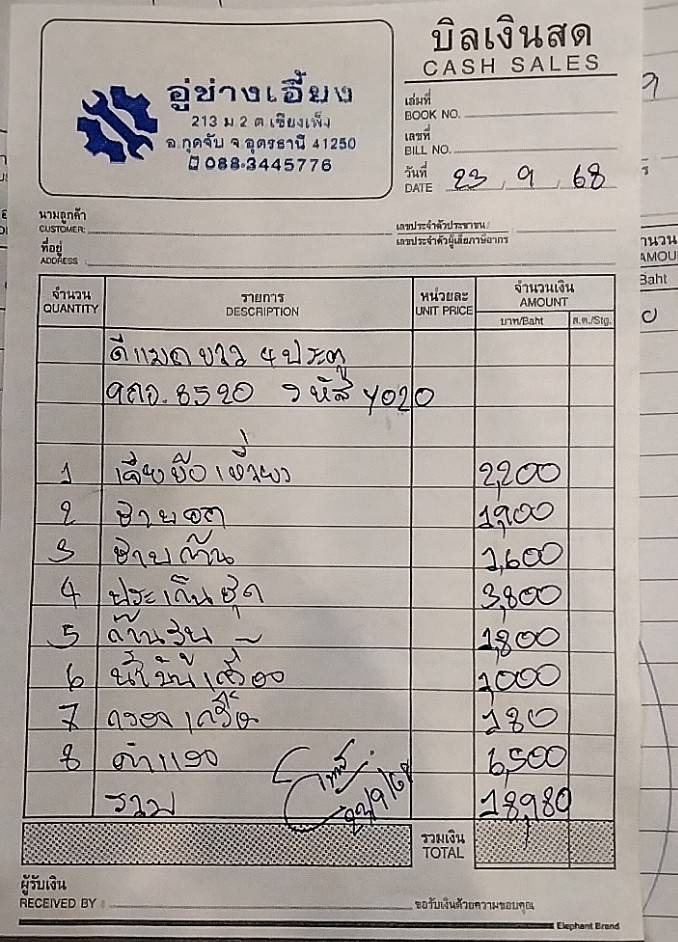 บิลเงินสด
CASH SALES
อู่ช่างเอี้ยง
213 ม.2 ต.เชียงเพ็ง
อ.กุดจับ จ.อุดรธานี 41250
088-3445776
เล่มที่
BOOK NO.
เลขที่
BILL NO.
วันที่
DATE 23, 9, 68
นามลูกค้า
CUSTOMER:
เลขประจำตัวประชาชน/
เลขประจำตัวผู้เสียภาษีอากร
ที่อยู่
ADDRESS
จำนวน รายการ หน่วยละ จำนวนเงิน
QUANTITY DESCRIPTION UNIT PRICE AMOUNT
บาท/Baht ส.ต./Stg.
ดีแมค ขาว 4 ประตู
8520 รหัส Y020
1 2,200
2 ชาบอก 1,900
3 ชาบก้าน 1,600
4 ประเก็นชุด 3,800
5 1,800
6 น้ำมันเครื่อง 1,000
7 กรองเครื่อง 180
8 ค่าแรง 6,500
รวม 18,980
รวมเงิน
TOTAL
ผู้รับเงิน
RECEIVED BY
ขอรับเงินด้วยความขอบคุณ
Elephant Brand